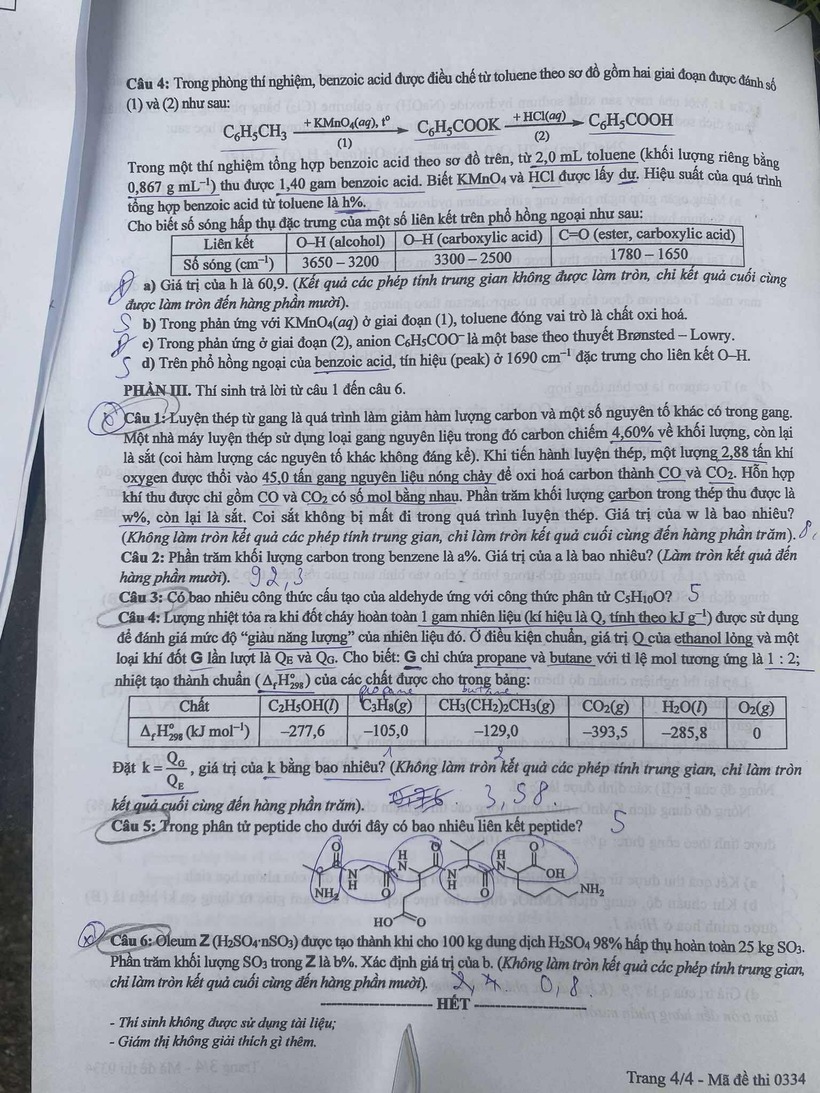 Câu 4: Trong phòng thí nghiệm, benzoic acid được điều chế từ toluene theo sơ đồ gồm hai giai đoạn được đánh số
(1) và (2) như sau:
C₆H₅CH₃ + KMnO₄(aq), t° (1) → C₆H₅COOK + HCl(aq) (2) → C₆H₅COOH
Trong một thí nghiệm tổng hợp benzoic acid theo sơ đồ trên, từ 2,0 mL toluene (khối lượng riêng bằng
0,867 g mL⁻¹) thu được 1,40 gam benzoic acid. Biết KMnO₄ và HCl được lấy dư. Hiệu suất của quá trình
tổng hợp benzoic acid từ toluene là h%.
Cho biết số sóng hấp thụ đặc trưng của một số liên kết trên phổ hồng ngoại như sau:
Liên kết O–H (alcohol) O–H (carboxylic acid) C=O (ester, carboxylic acid)
Số sóng (cm⁻¹) 3650 – 3200 3300 – 2500 1780 – 1650
Đ a) Giá trị của h là 60,9. (Kết quả các phép tính trung gian không được làm tròn, chỉ kết quả cuối cùng
được làm tròn đến hàng phần mười).
S b) Trong phản ứng với KMnO₄(aq) ở giai đoạn (1), toluene đóng vai trò là chất oxi hoá.
Đ c) Trong phản ứng ở giai đoạn (2), anion C₆H₅COO⁻ là một base theo thuyết Brønsted – Lowry.
S d) Trên phổ hồng ngoại của benzoic acid, tín hiệu (peak) ở 1690 cm⁻¹ đặc trưng cho liên kết O–H.
PHẦN III. Thí sinh trả lời từ câu 1 đến câu 6.
Câu 1: Luyện thép từ gang là quá trình làm giảm hàm lượng carbon và một số nguyên tố khác có trong gang.
Một nhà máy luyện thép sử dụng loại gang nguyên liệu trong đó carbon chiếm 4,60% về khối lượng, còn lại
là sắt (coi hàm lượng các nguyên tố khác không đáng kể). Khi tiến hành luyện thép, một lượng 2,88 tấn khí
oxygen được thổi vào 45,0 tấn gang nguyên liệu nóng chảy để oxi hoá carbon thành CO và CO₂. Hỗn hợp
khí thu được chỉ gồm CO và CO₂ có số mol bằng nhau. Phần trăm khối lượng carbon trong thép thu được là
w%, còn lại là sắt. Coi sắt không bị mất đi trong quá trình luyện thép. Giá trị của w là bao nhiêu?
(Không làm tròn kết quả các phép tính trung gian, chỉ làm tròn kết quả cuối cùng đến hàng phần trăm).
Câu 2: Phần trăm khối lượng carbon trong benzene là a%. Giá trị của a là bao nhiêu? (Làm tròn kết quả đến
hàng phần mười). 92,3
Câu 3: Có bao nhiêu công thức cấu tạo của aldehyde ứng với công thức phân tử C₅H₁₀O? 5
Câu 4: Lượng nhiệt tỏa ra khi đốt cháy hoàn toàn 1 gam nhiên liệu (kí hiệu là Q, tính theo kJ g⁻¹) được sử dụng
để đánh giá mức độ “giàu năng lượng” của nhiên liệu đó. Ở điều kiện chuẩn, giá trị Q của ethanol lỏng và một
loại khí đốt G lần lượt là Qᴇ và Qɢ. Cho biết: G chỉ chứa propane và butane với tỉ lệ mol tương ứng là 1 : 2;
nhiệt tạo thành chuẩn (ΔfH°₂₉₈) của các chất được cho trong bảng:
propane butane
Chất C₂H₅OH(l) C₃H₈(g) CH₃(CH₂)₂CH₃(g) CO₂(g) H₂O(l) O₂(g)
ΔfH°₂₉₈ (kJ mol⁻¹) –277,6 –105,0 –129,0 –393,5 –285,8 0
1 2
Đặt k = Qɢ/Qᴇ, giá trị của k bằng bao nhiêu? (Không làm tròn kết quả các phép tính trung gian, chỉ làm tròn
kết quả cuối cùng đến hàng phần trăm). 3,58
Câu 5: Trong phân tử peptide cho dưới đây có bao nhiêu liên kết peptide? 5
O H N O H N O
NH₂ N H O N H O OH NH₂
HO O
Câu 6: Oleum Z (H₂SO₄·nSO₃) được tạo thành khi cho 100 kg dung dịch H₂SO₄ 98% hấp thụ hoàn toàn 25 kg SO₃.
Phần trăm khối lượng SO₃ trong Z là b%. Xác định giá trị của b. (Không làm tròn kết quả các phép tính trung gian,
chỉ làm tròn kết quả cuối cùng đến hàng phần mười). 0,8
HẾT
- Thí sinh không được sử dụng tài liệu;
- Giám thị không giải thích gì thêm.
Trang 4/4 - Mã đề thi 0334